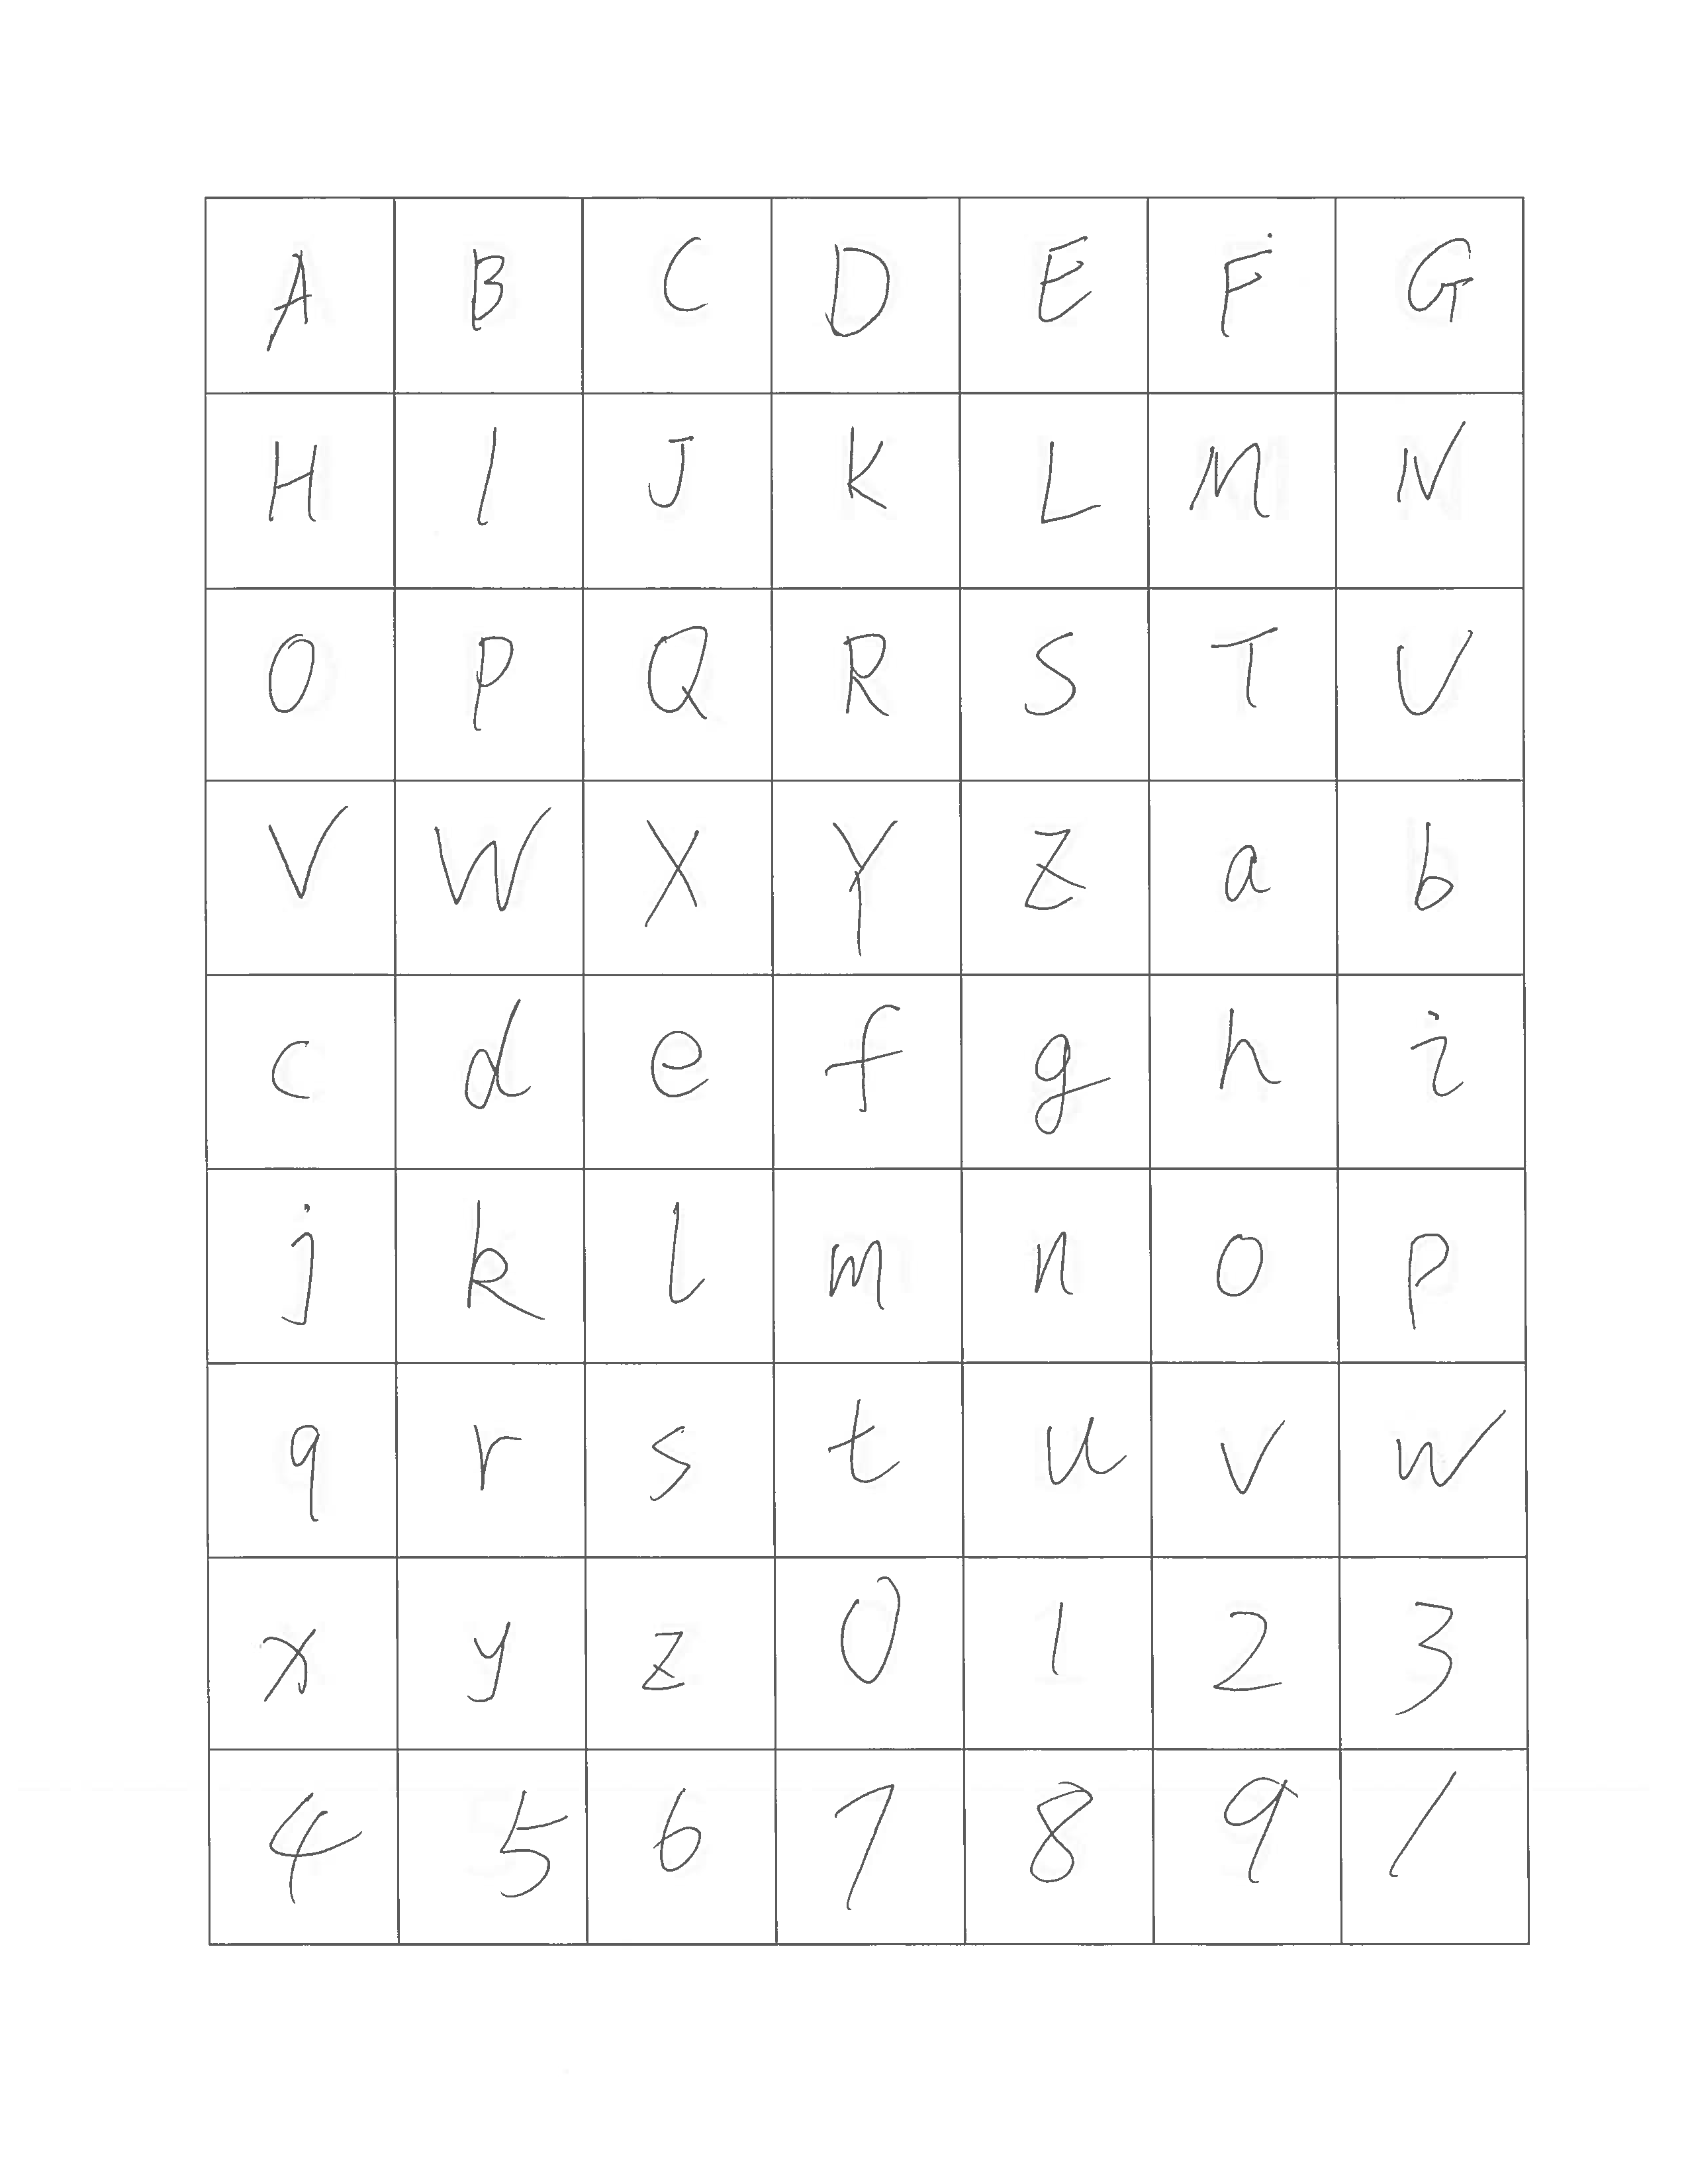 A B C D E F G
H I J K L M N
O P Q R S T U
V W X Y Z a b
c d e f g h i
j k l m n o p
q r s t u v w
x y z 0 1 2 3
4 5 6 7 8 9 /